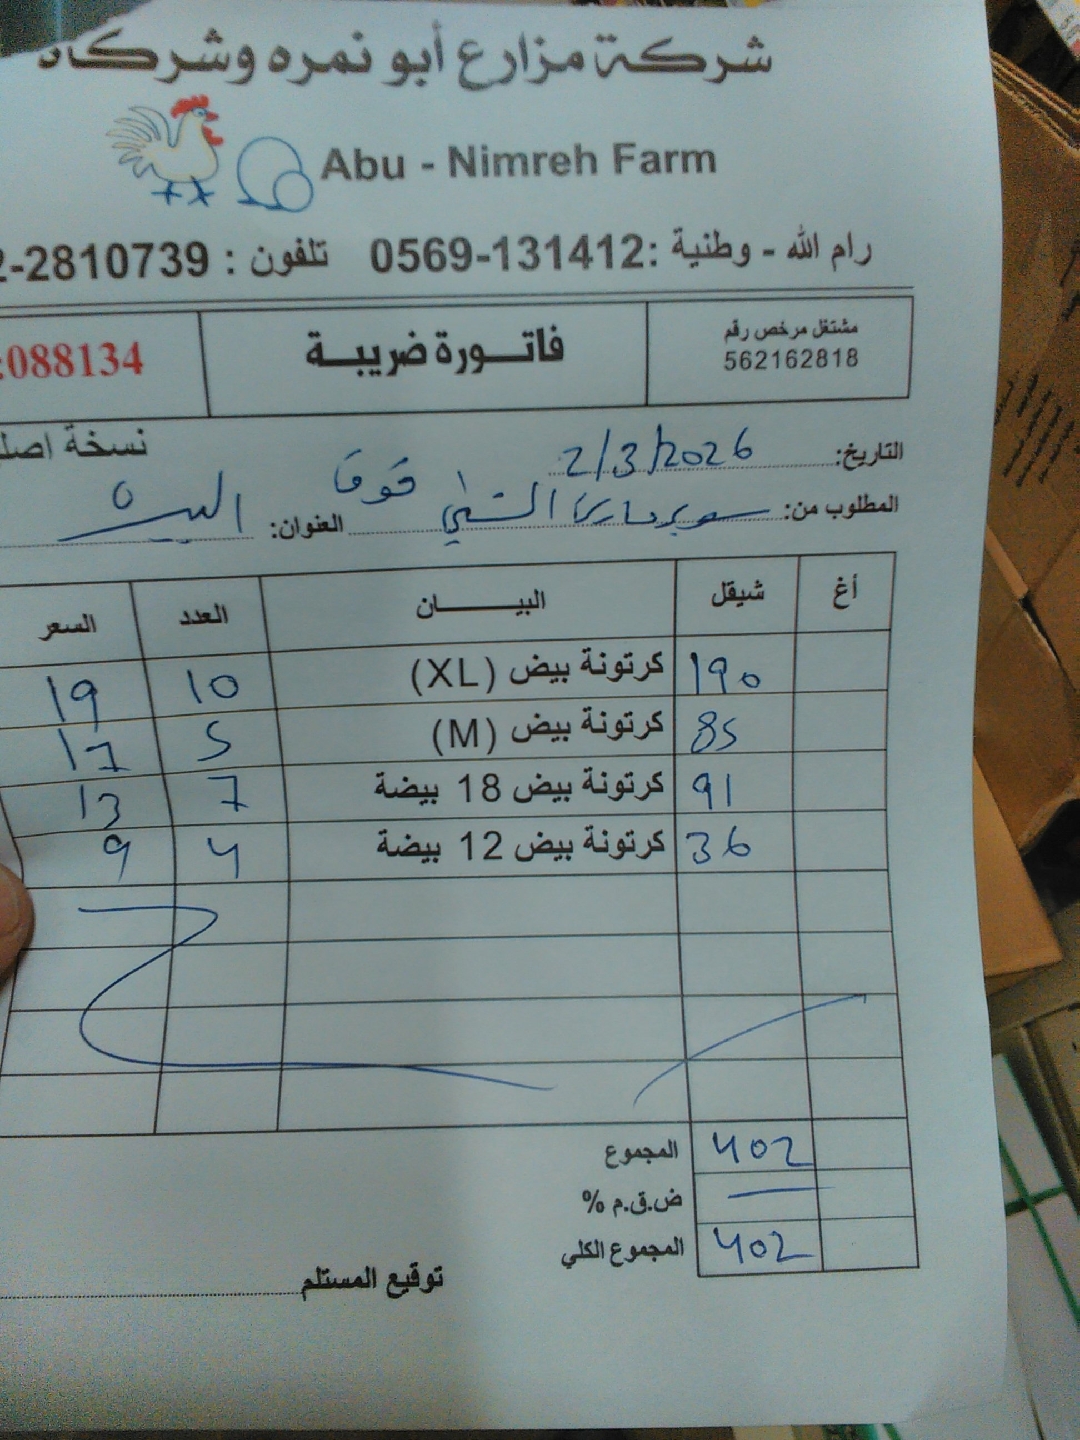 شركة مزارع أبو نمره وشركاه
Abu - Nimreh Farm
رام الله - وطنية :0569-131412 تلفون : 2-2810739
مشتغل مرخص رقم
562162818
فاتورة ضريبة
:088134
نسخة اصل
التاريخ: 2/3/2026
المطلوب من: سوبرماركت الشني العنوان: البيرة
أغ شيقل البيان العدد السعر
190 كرتونة بيض (XL) 10 19
85 كرتونة بيض (M) 5 17
91 كرتونة بيض 18 بيضة 7 13
36 كرتونة بيض 12 بيضة 4 9
المجموع 402
ض.ق.م %
المجموع الكلي 402
توقيع المستلم